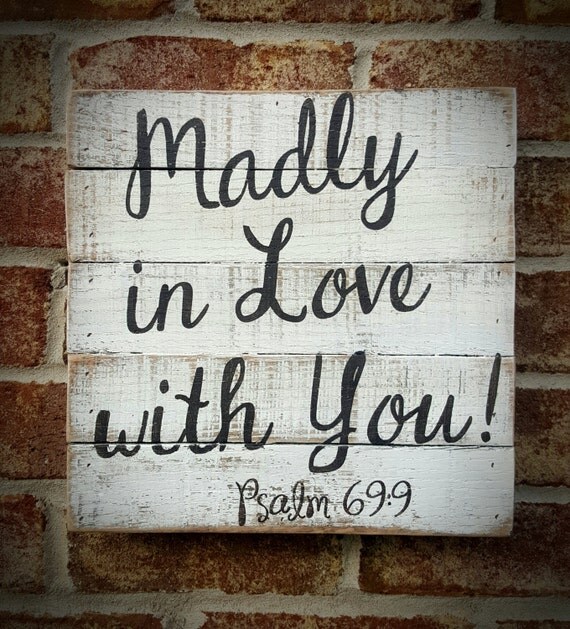 Madly
in Love
with You!
Psalm 69:9